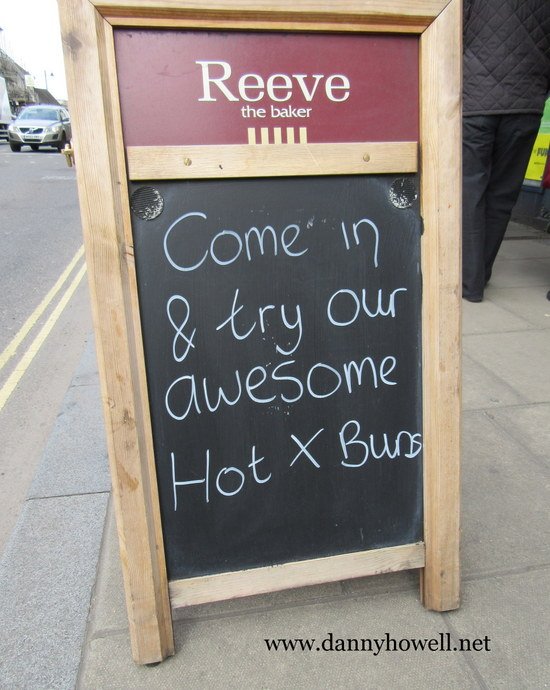 Reeve
the baker
Come in
& try our
awesome
Hot X Buns
www.dannyhowell.net